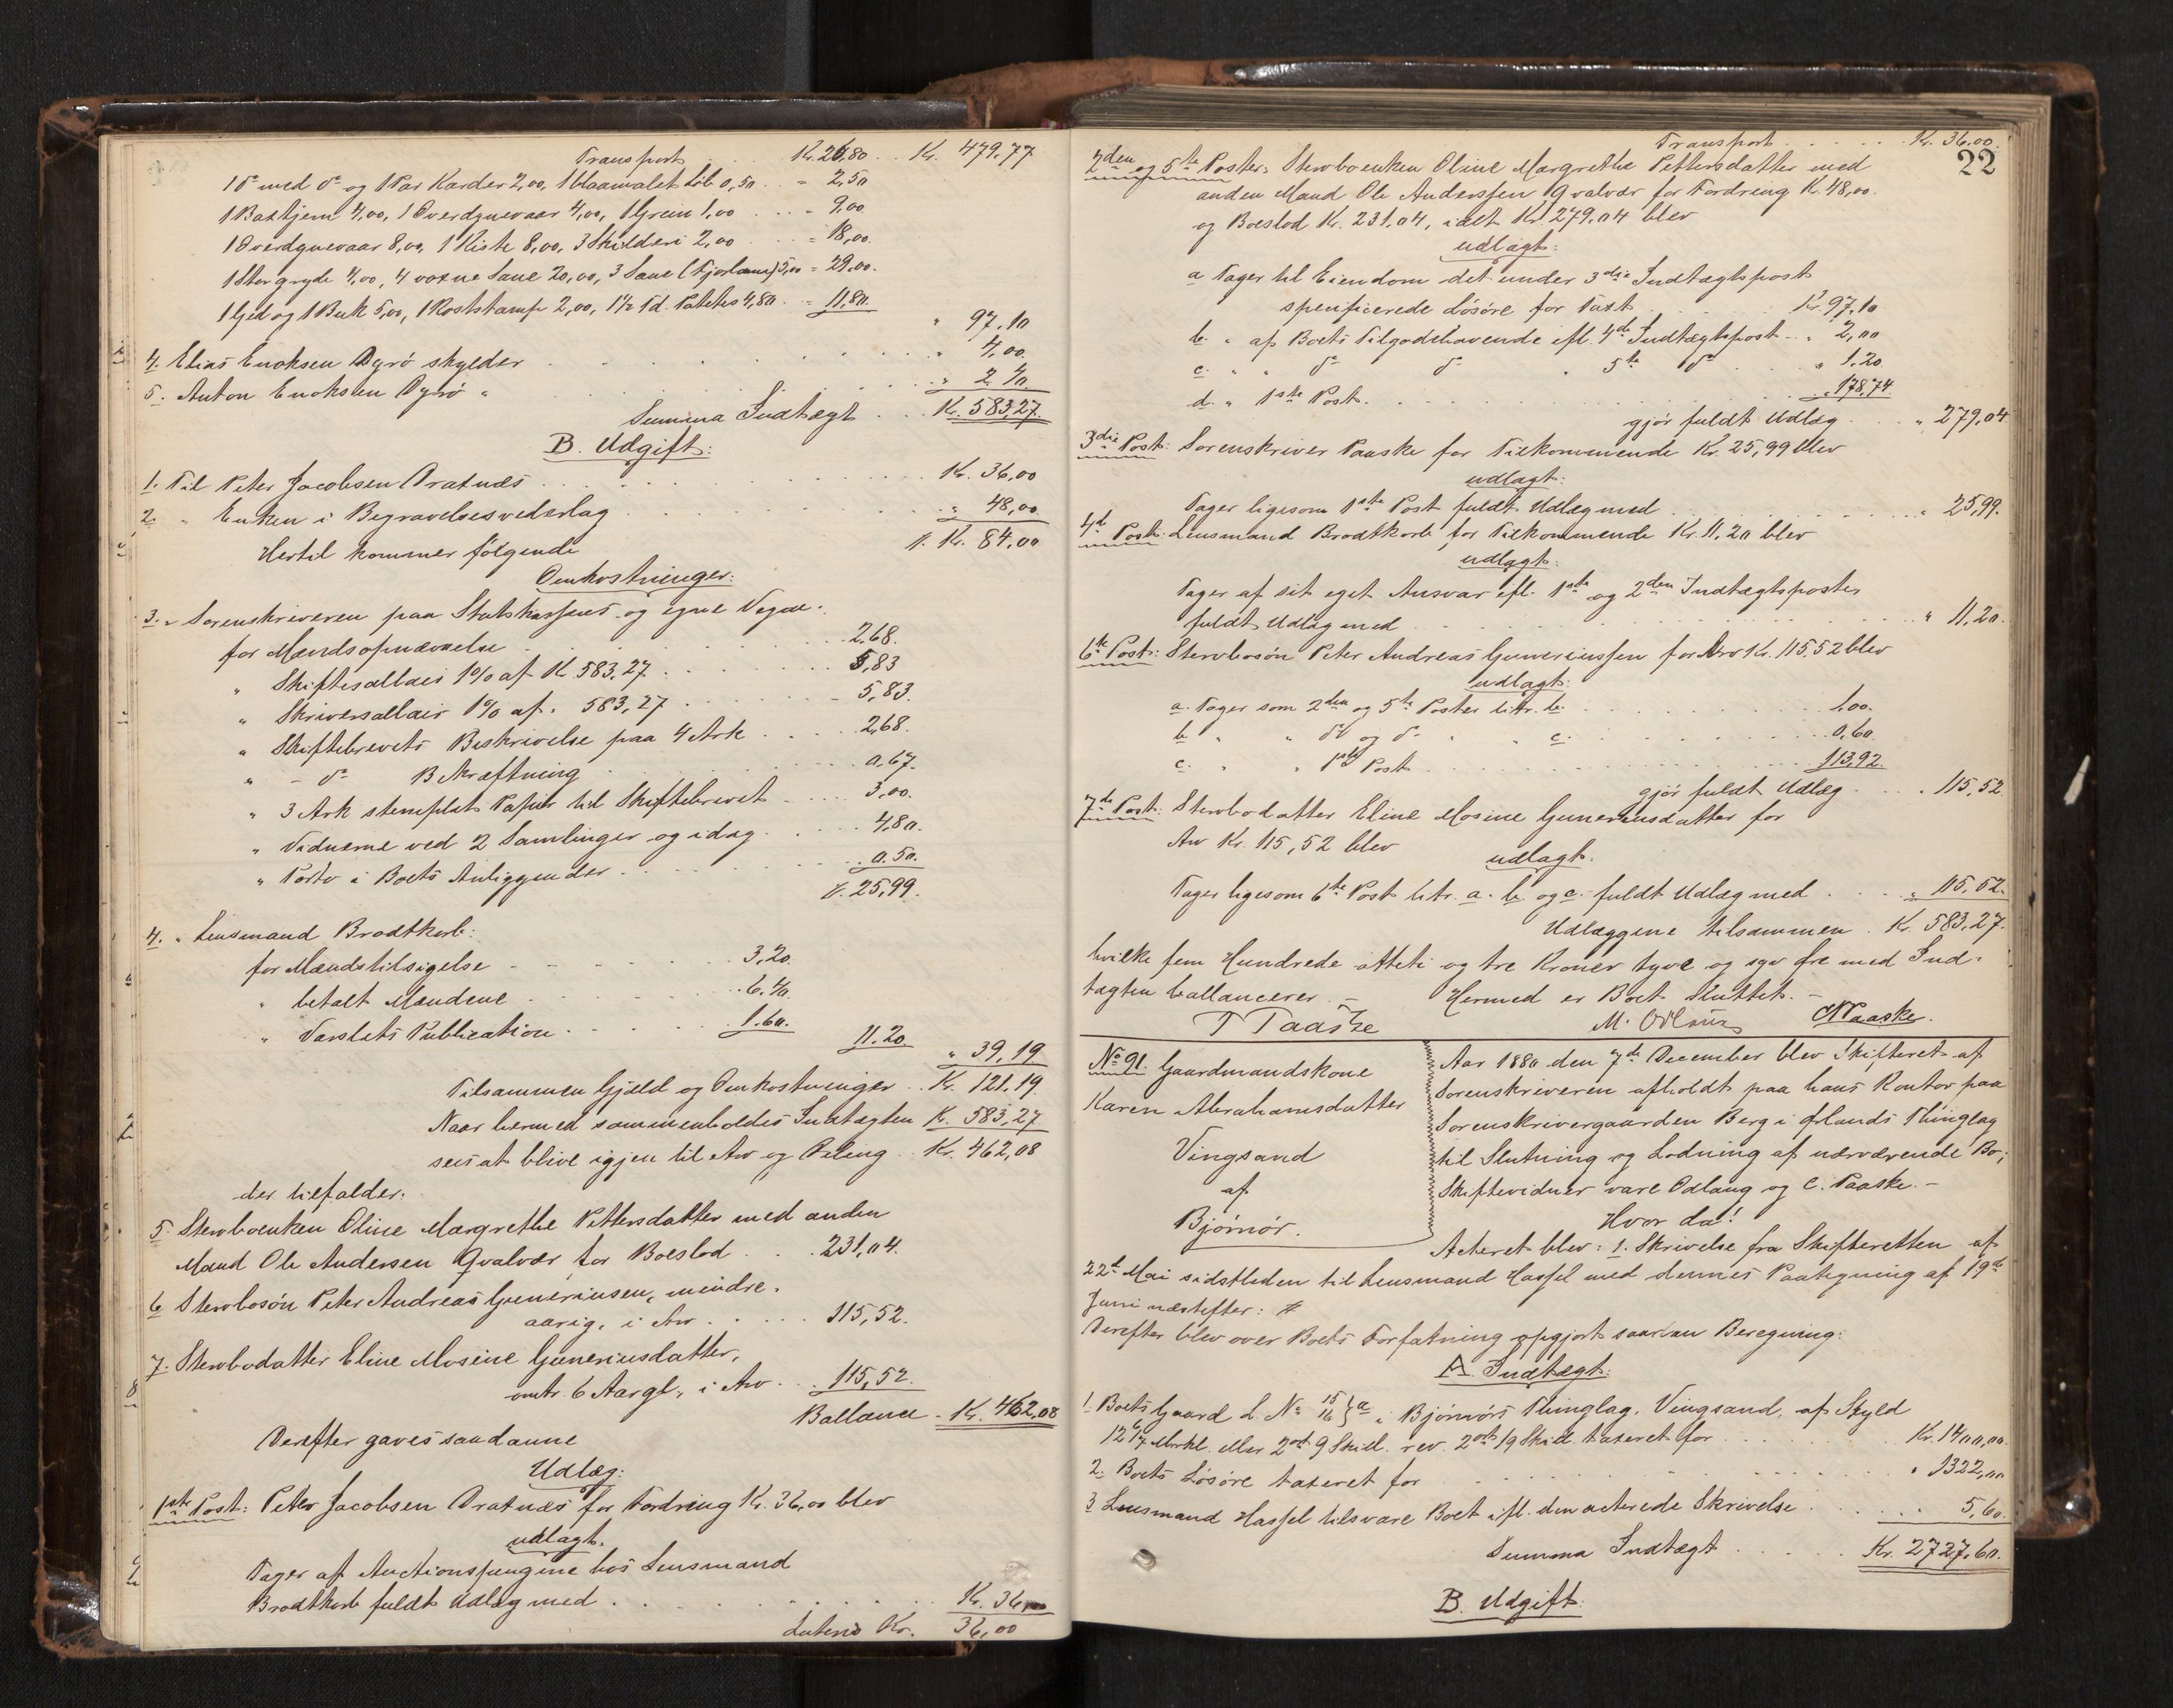 Transport . . Kr. 26,80 . . Kr. 479,77
1 do med do og 1 Par Karder 2,00, 1 blaamalet Löb 0,50 . . " 2,50
1 Baxtjern 4,00, 1 Overdynevaar 4,00, 1 Grein 1,00 . . . " 9,00
1 Overdynevaar 8,00, 1 Kiste 8,00, 3 Skilderi 2,00 . . . " 18,00.
1 Stor gryde 4,00, 4 voxne Saue 20,00, 3 Saue (Fjorlam) 5,00 " 29,00.
1 Gjed og 1 Buk 5,00, 1 Koststamp 2,00, 1½ Td. Potetes 4,80 . . " 11,80.
" 97,10
4. Elias Enoksen Dyrö skylder . . . " 4,00.
5. Anton Enoksen Dyrö " . . . " 2,40.
Summa Indtægt . . . Kr. 583,27.
B. Udgift:
1. Til Peter Jacobsen Aratnæs . . . Kr. 36,00
2. " Enken i Begravelsesvederlag . . . " 48,00
Hertil kommer følgende /. Kr. 84,00
Omkostninger:
3. " Sorenskriveren paa Statskassens og egne Vegne:
for Mændsopnævnelse . . . 2,68.
" Skiftesallair 1% af Kr. 583,27 . . . 5,83
" Skriversallair 1% af " 583,27 . . . 5,83.
" Skiftebrevets Beskrivelse paa 4 Ark . . . 2,68.
" - do Bekræftning . . . 0,67.
" 3 Ark stemplet Papiir til Skiftebrevet . . . 3,00.
" Vidnerne ved 2 Samlinger og idag . . . 4,80.
" Porto i Boets Anliggender . . . 0,50.
/. 25,99.
4. " Lensmand Brodtkorb:
for Mændstilsigelse . . . 3,20.
" betalt Mændene . . . 6,40.
" Varslets Publication . . . 1,60. 11,20
" 39,19
Tilsammen Gjæld og Omkostninger . . Kr. 121,19.
Naar hermed sammenholdes Indtægten Kr. 583,27
sees at blive igjen til Arv og Deling . . Kr. 462,08
der tilfalder:
5. Stervboenken Oline Margrethe Pettersdatter med anden
Mand Ole Andersen Qvalvær for Boeslod . . . 231,04.
6. Stervbosön Peter Andreas Guneriussen, mindre-
aarig, i Arv . . . 115,52.
7. Stervbodatter Eline Mosine Guneriusdatter,
omtr. 6 Aar gl., i Arv . . 115,52.
Ballance . Kr. 462,08
Derefter gaves saadanne
Udlæg:
1ste Post: Peter Jacobsen Aratnæs for Fordring Kr. 36,00 blev
udlagt.
Tager af Auctionspengene hos Lensmand
Brodtkorb fuldt Udlæg med . . . Kr. 36,00
Lateris Kr. 36,00
Transport . . . Kr. 36,00.
22
2den og 5te Poster: Stervboenken Oline Margrethe Pettersdatter med
anden Mand Ole Anderssen Qvalvær for Fordring Kr. 48,00.
og Boeslod Kr. 231,04, ialt Kr. 279,04 blev
udlagt:
a Tager til Eiendom det under 3die Indtægtspost
specificerede Lösöre for Taxt . . . Kr. 97,10
b. " af Boets Tilgodehavende ifl. 4de Indtægtspost . . " 2,00
c. " " do do " 5te do " 1,20
d. " 1ste Post . . . " 178,74.
gjör fuldt Udlæg . . . " 279,04
3die Post: Sorenskriver Paaske for Tilkommende Kr. 25,99 blev
udlagt:
Tager ligesom 1ste Post fuldt Udlæg med . . . " 25,99.
4de Post: Lensmand Brodtkorb for Tilkommende Kr. 11,20 blev
udlagt:
Tager af sit eget Ansvar ifl. 1ste og 2den Indtægtsposter
fuldt Udlæg med . . . " 11,20.
6te Post: Stervbosön Peter Andreas Guneriussen for Arv Kr. 115,52 blev
udlagt:
a. Tager som 2den og 5te Poster litr. b. . . . 1,00.
b. " " do og do " " c. . . . 0,60
c. " " 1ste Post . . . 113,92.
gjör fuldt Udlæg . . . " 115,52
7de Post: Stervbodatter Eline Mosine Guneriusdatter for
Arv Kr. 115,52 blev
udlagt:
Tager ligesom 6te Post litr. a. b. og c. fuldt Udlæg med . . . " 115,52.
Udlæggene tilsammen . Kr. 583,27.
hvilke fem Hundrede otteti og tre Kroner tyve og syv Øre med Ind-
tægten ballancerer. — Hermed er Boet sluttet. —
T Paaske M. Odlaug C Paaske.
No 91. Gaardmandskone
Karen Abrahamsdatter
Vingsand
af
Bjórnör.
Aar 1880 den 7de December blev Skifteret af
Sorenskriveren afholdt paa hans Kontor paa
Sorenskrivergaarden Berg i Ørlands Thinglag
til Slutning og Lodning af nærværende Bo;
Skiftevidner vare Odlaug og C. Paaske. —
Hvor da!
Acteret blev: 1. Skrivelse fra Skifteretten af
22de Mai sidstleden til Lensmand Hassel med dennes Paategning af 19de
Juni næstefter: #
Derefter blev over Boets Forfatning opgjort saadan Beregning:
A. Indtægt:
1. Boets Gaard L. No 15/16 } a i Bjórnörs Thinglag, Vingsand, af Skyld
12 6/7 Mrkl. eller 2 ort 9 Skill. rev. 2 ort 19 Skill. taxeret for . . . Kr. 1400,00.
2. Boets Lösöre taxeret for . . . " 1322,00
3 Lensmand Hassel tilsvare Boet ifl. den acterede Skrivelse . . . " 5,60.
Summa Indtægt . . . Kr. 2727,60.
B. Udgift: